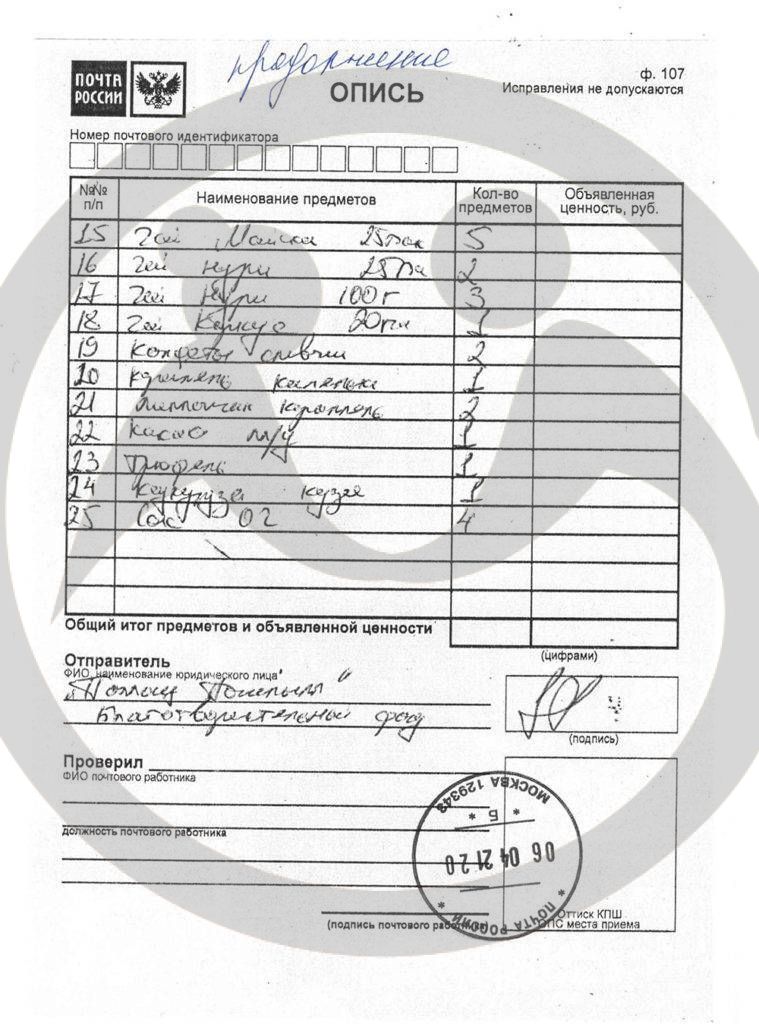 продолжение
ПОЧТА РОССИИ
ОПИСЬ
ф. 107
Исправления не допускаются
Номер почтового идентификатора
№№ п/п Наименование предметов Кол-во предметов Объявленная ценность, руб.
15 Чай Майска 25пак 5
16 Чай Нури 25па 2
17 Чай Нури 100г 3
18 Чай 20пак 1
19 Конфеты 2
20 карамель 1
21 карамель 2
22 Какао 1
23 Трюфель 1
24 Кукуруза 1
25 Сок 02 4
Общий итог предметов и объявленной ценности
(цифрами)
Отправитель
ФИО, наименование юридического лица
"Помощь
Благотворительный фонд
(подпись)
Проверил
ФИО почтового работника
должность почтового работника
(подпись почтового работника)
МОСКВА 129343
* Б *
06 04 21 20
* ПОЧТА РОССИИ *
Оттиск КПШ
ОПС места приема